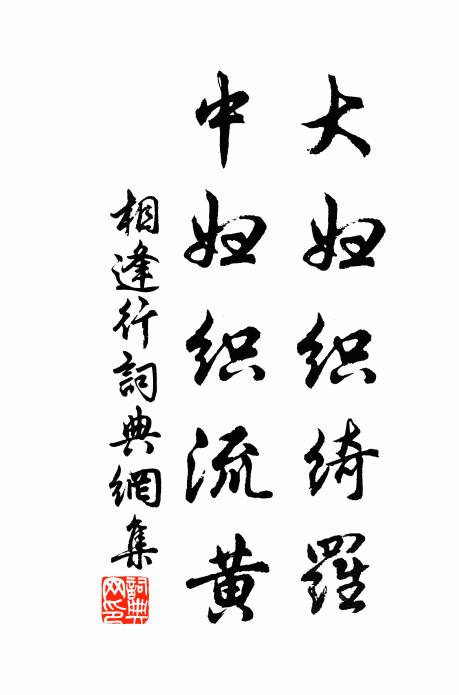 大妇织绮羅
中妇织流黄
相逢行詞典網集
詞典网印